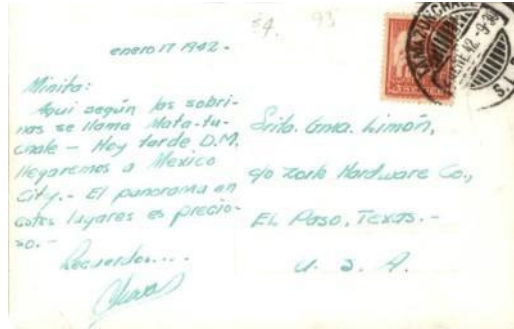 84. 93
enero 17 1942.-
Minita:
Aquí según las sobri-
nas se llama Mata-tu-
chale - Hoy tarde D.M.
llegaremos a Mexico
City.- El panorama en
estos lugares es precio-
so.-
Recuerdos....
Srita. Gma. Limón,
c/o Zork Hardware Co.,
EL Paso, Texas.-
U. S. A.
TAMAZUNCHALE
ENE. 42.-9-30
S. L. P.